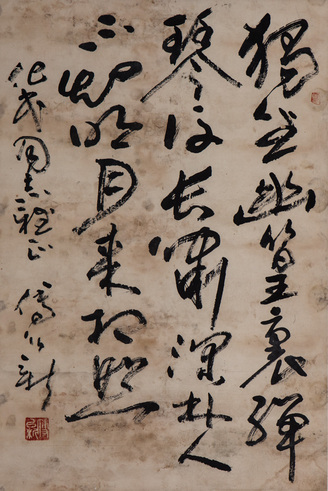 獨坐幽篁裏彈
琴復長嘯深林人
不知明月来相照
同志雅正 傅以新